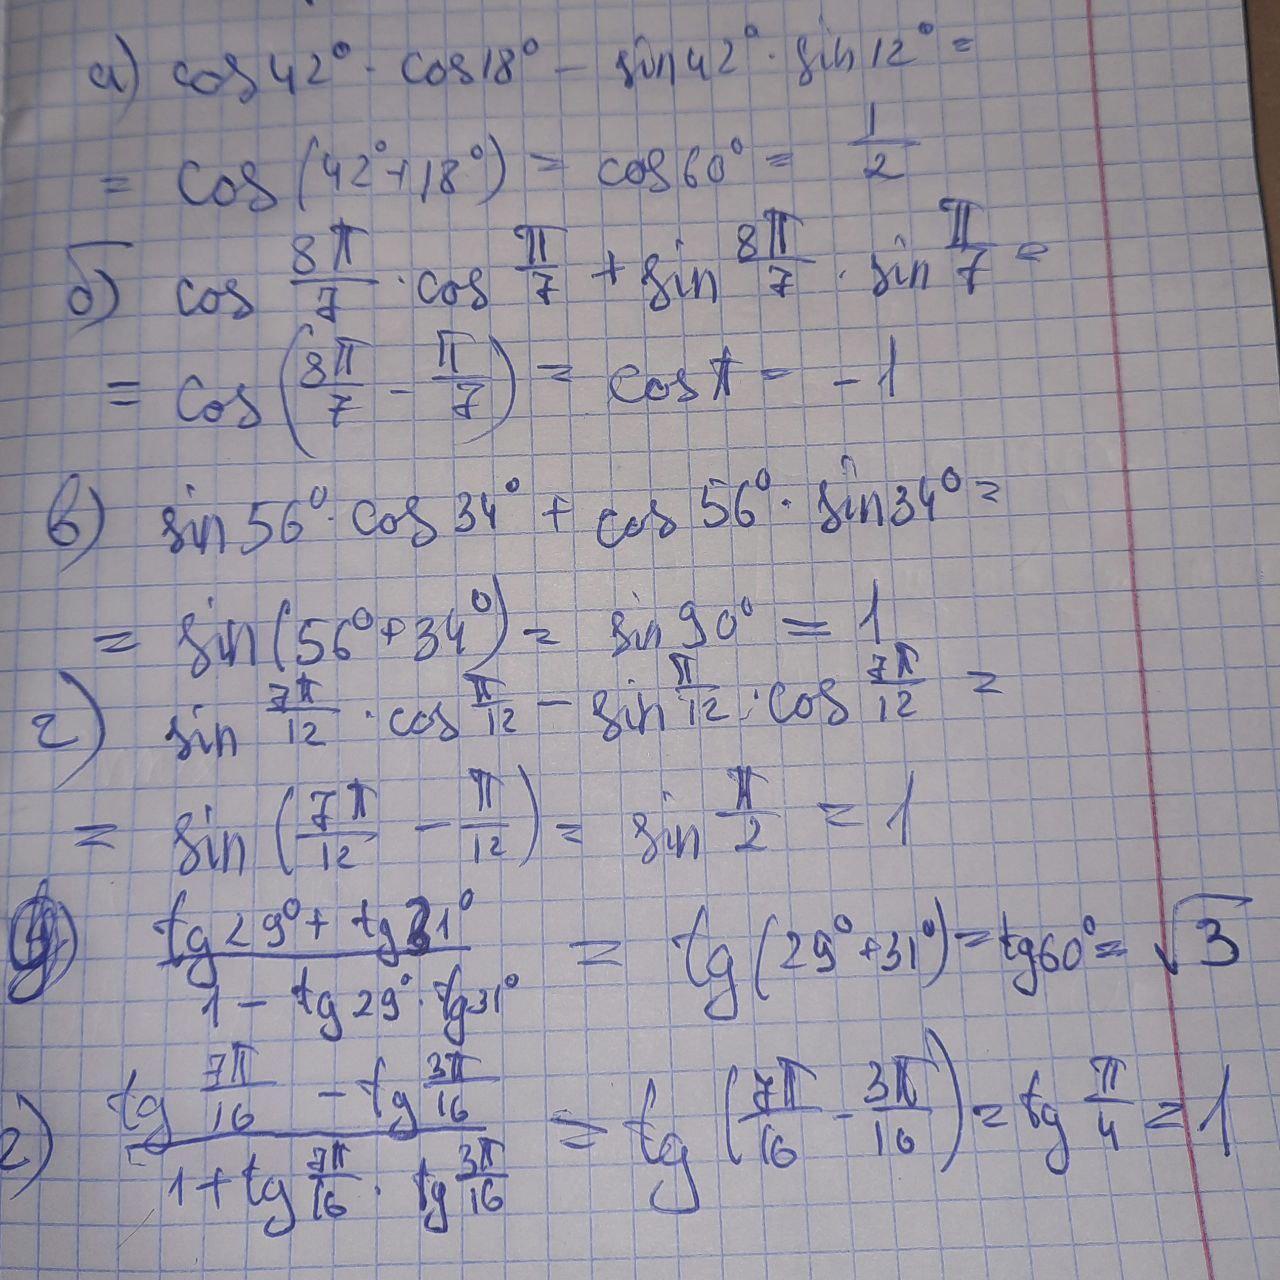 а) cos 42° · cos 18° − sin 42° · sin 12° =
= cos (42° + 18°) = cos 60° = 1/2
б) cos 8π/7 · cos π/7 + sin 8π/7 · sin π/7 =
= cos (8π/7 − π/7) = cos π = −1
в) sin 56° · cos 34° + cos 56° · sin 34° =
= sin (56° + 34°) = sin 90° = 1
г) sin 7π/12 · cos π/12 − sin π/12 · cos 7π/12 =
= sin (7π/12 − π/12) = sin π/2 = 1
д) (tg 29° + tg 31°)/(1 − tg 29° · tg 31°) = tg (29° + 31°) = tg 60° = √3
е) (tg 7π/16 − tg 3π/16)/(1 + tg 7π/16 · tg 3π/16) = tg (7π/16 − 3π/16) = tg π/4 = 1